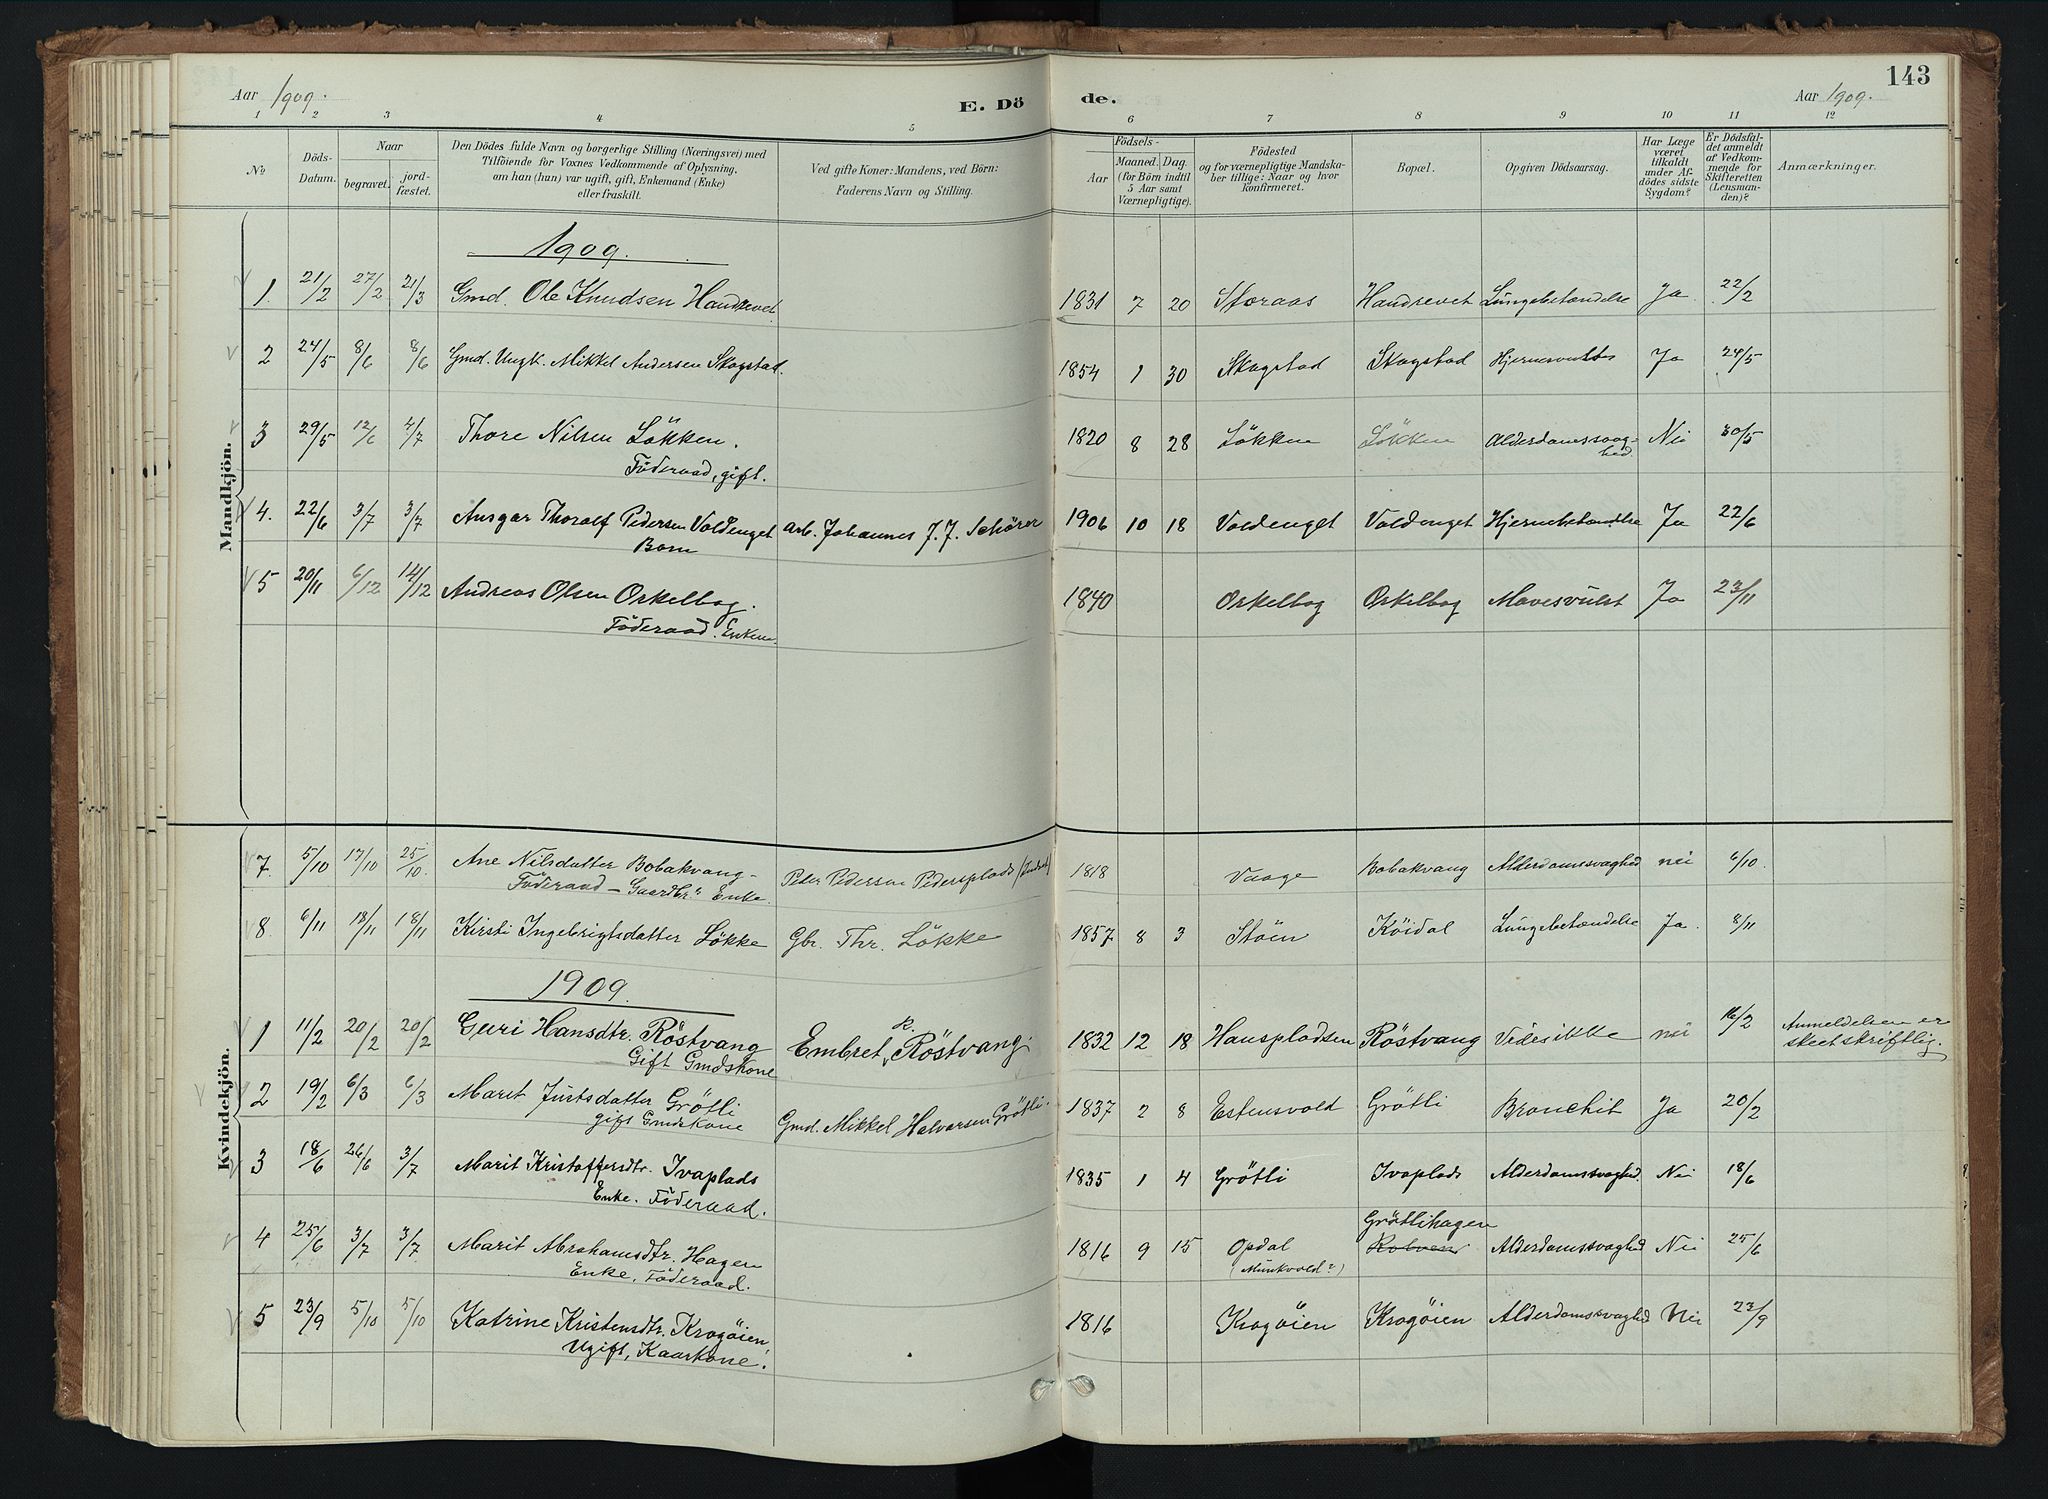 Aar 1909.
E. Dö
de.
Aar 1909.
143
1 2 3 4 5 6 7 8 9 10 11 12
No
Döds-Datum.
Naar
begravet.
jord-fæstet.
Den Dödes fulde Navn og borgerlige Stilling (Næringsvei) med
Tilföiende for Voxnes Vedkommende af Oplysning,
om han (hun) var ugift, gift, Enkemand (Enke)
eller fraskilt.
Ved gifte Koner: Mandens, ved Börn:
Faderens Navn og Stilling.
Födsels-
Aar
Maaned. Dag.
(for Börn indtil
5 Aar samt
Værnepligtige).
Födested
og for værnepligtige Mandska-
ber tillige: Naar og hvor
konfirmeret.
Bopæl.
Opgiven Dödsaarsag.
Har Læge
været
tilkaldt
under Af-
dödes sidste
Sygdom?
Er Dödsfal-
det anmeldt
af Vedkom-
mende for
Skifteretten
(Lensman-
den)?
Anmærkninger.
Mandkjön.
1909.
1. 21/2 27/2 21/3 Gmd. Ole Knudsen Handrevet. 1831 7 20 Storaas Handrevet Lungebetændelse Ja 22/2
2 24/5 8/6 8/6 Gmd. Ungk. Mikkel Andersen Skogstad. 1854 1 30 Skogstad Skogstad Ja 24/5
3 29/5 12/6 4/7 Thore Nilsen Lökken. 1820 8 28 Lökken Lökken Alderdomssvag- Nei 30/5
hed.
Föderaad, gift.
4. 22/6 3/7 3/7 Ansgar Thoralf Pedersen Voldenget Arb. Johannes J. J. Schörer 1906 10 18 Voldenget Voldenget Hjernebetændelse Ja 22/6
Barn
5 20/11 6/12 14/12 Andreas Olsen Orkelbog. 1840 Orkelbog Orkelbog Mavesvulst Ja 23/11
Föderaad. Enkem.
Kvindekjön.
7. 5/10 17/10 25/10 Ane Nilsdatter Bobakvang- Peder Pedersen Pedersplads 1818 Vaage Bobakvang Alderdomssvaghed nei 6/10.
Föderaad - Gaardbr. Enke.
8. 6/11 18/11 18/11 Kirsti Ingebrigtsdatter Lökke Gbr. Thr. Lökke 1857 8 3 Stöen Köidal Lungebetændelse Ja. 8/11
1909.
1 11/2 20/2 20/2 Guri Hansdtr. Röstvang Embret R. Röstvang. 1832 12 18 Hanspladsen Röstvang Vides ikke nei 16/2 Anmeldelsen er
skeet skriftlig.
Gift Gmdskone
2 19/2 6/3 6/3 Marit Jurtsdatter Grötli Gmd. Mikkel Halvorsen Grötli. 1837 2 8 Estensvold Grötli Bronchit Ja 20/2
gift Gmdskone
3 18/6 26/6 3/7 Marit Kristoffersdtr. Ivaplads 1835 1 4 Grötli Ivaplads Alderdomssvaghed. Nei 18/6
Enke. Föderaad.
Grötlihagen
4 25/6 3/7 3/7 Marit Abrahamsdtr. Hagen 1816 9 15 Opdal Alderdomssvaghed Nei 25/6
Enke, Föderaad. (Munkvold?)
5 23/9 5/10 5/10 Katrine Kristensdtr. Krogöien, 1816 Krogöien Krogöien Alderdomssvaghed Nei 23/9
Ugift, Kaarkone.